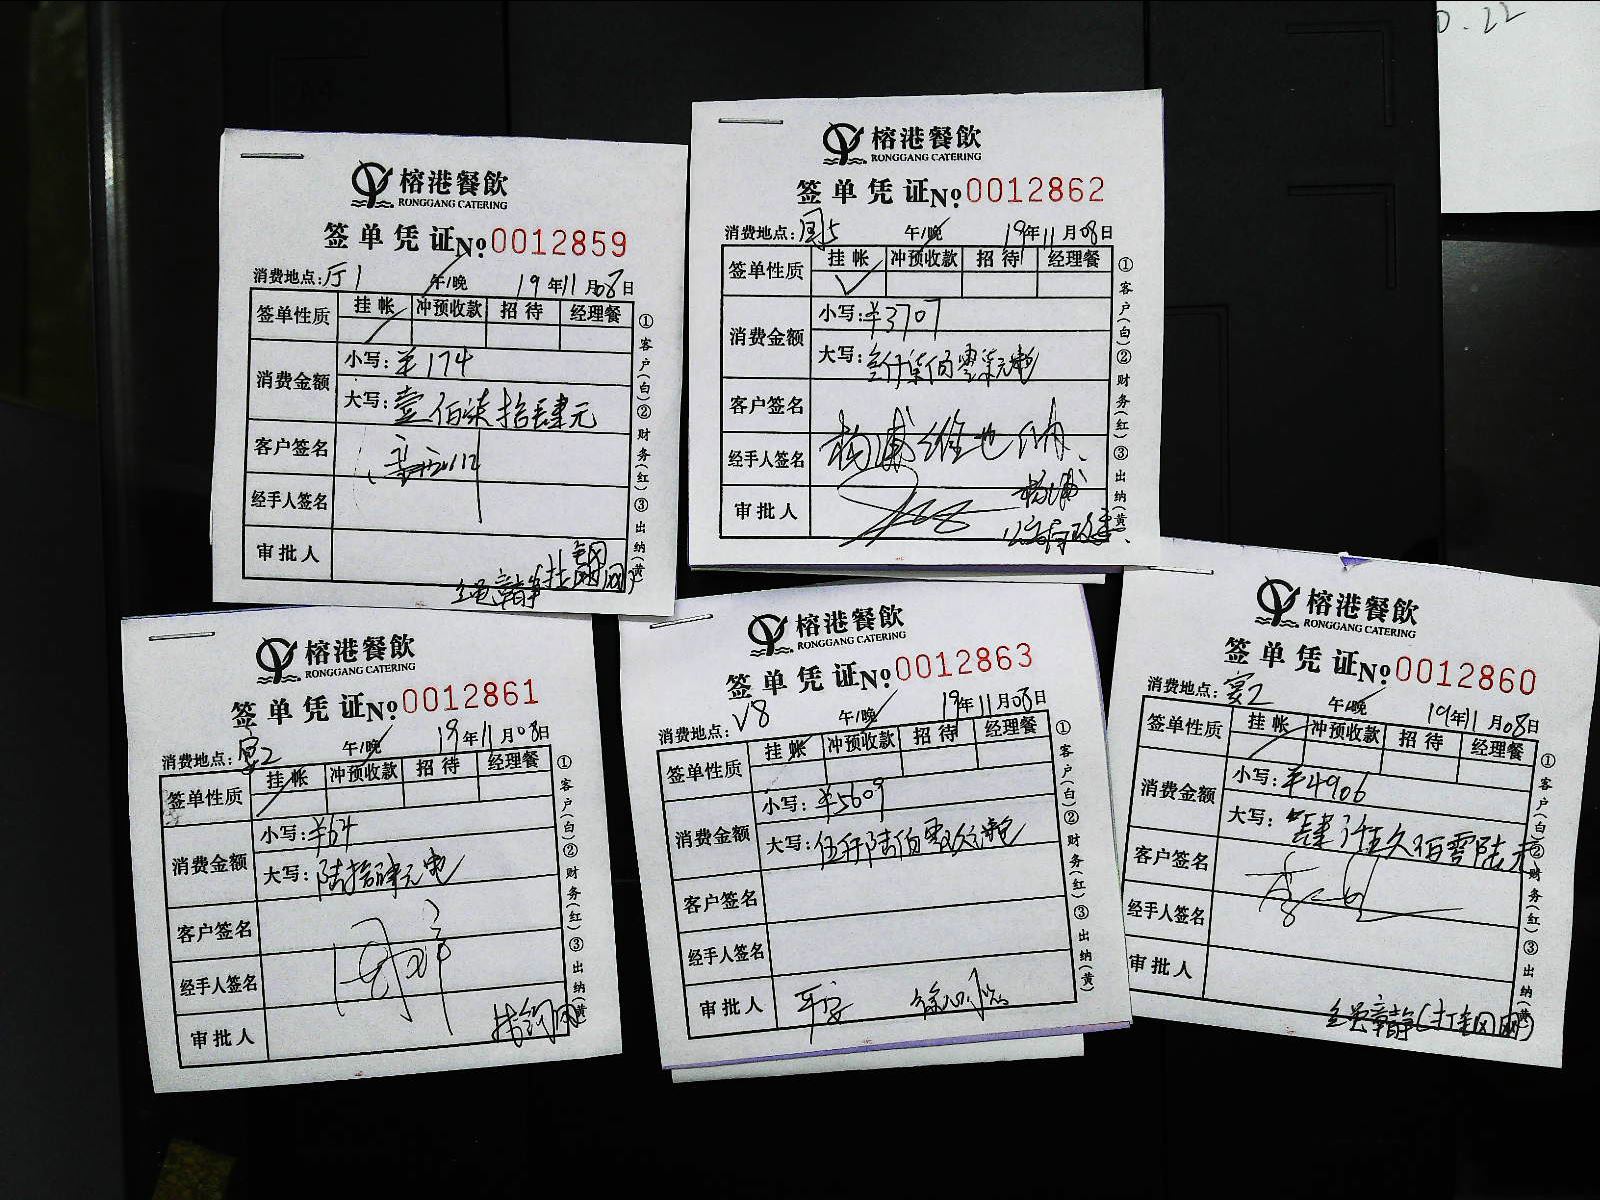 0.22
榕港餐飲
RONGGANG CATERING
签单凭证 No. 0012859
消费地点: 厅1 午/晚 19年11月08日
签单性质 挂帐 冲预收款 招待 经理餐
消费金额 小写: ¥174
大写: 壹佰柒拾肆元
客户签名
经手人签名
审批人
①客户(白)②财务(红)③出纳(黄)
榕港餐飲
RONGGANG CATERING
签单凭证 No. 0012862
消费地点: 午/晚 19年11月08日
签单性质 挂帐 冲预收款 招待 经理餐
消费金额 小写: ¥3707
大写: 叁仟柒佰零柒元整
客户签名
经手人签名 杨浦维也纳
审批人 杨浦
①客户(白)②财务(红)③出纳(黄)
榕港餐飲
RONGGANG CATERING
签单凭证 No. 0012861
消费地点: 宴2 午/晚 19年11月08日
签单性质 挂帐 冲预收款 招待 经理餐
消费金额 小写: ¥64
大写: 陆拾肆元
客户签名
经手人签名
审批人
①客户(白)②财务(红)③出纳(黄)
榕港餐飲
RONGGANG CATERING
签单凭证 No. 0012863
消费地点: V8 午/晚 19年11月08日
签单性质 挂帐 冲预收款 招待 经理餐
消费金额 小写: ¥5609
大写: 伍仟陆佰零玖元整
客户签名
经手人签名
审批人 平安
①客户(白)②财务(红)③出纳(黄)
榕港餐飲
RONGGANG CATERING
签单凭证 No. 0012860
消费地点: 宴2 午/晚 19年11月08日
签单性质 挂帐 冲预收款 招待 经理餐
消费金额 小写: ¥4906
大写: 肆仟玖佰零陆元
客户签名
经手人签名
审批人
①客户(白)②财务(红)③出纳(黄)